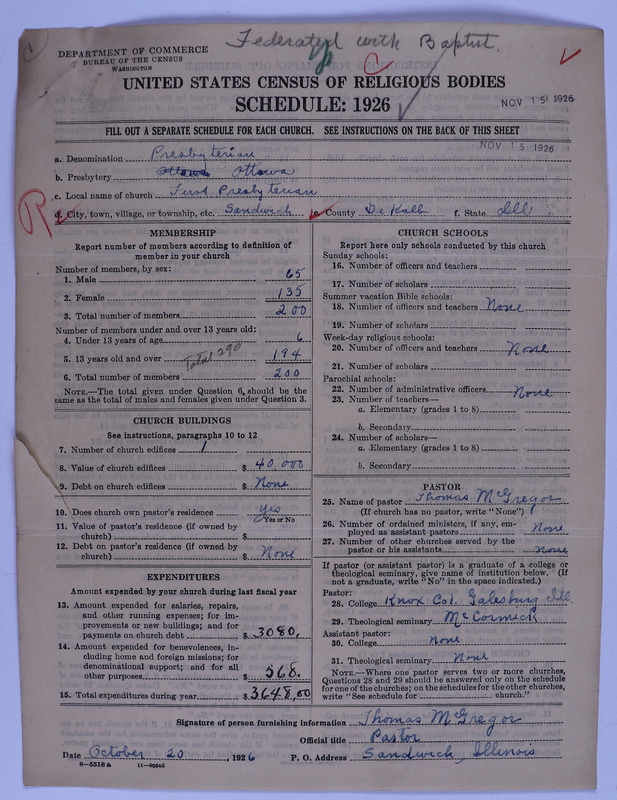 Federated with Baptist.
DEPARTMENT OF COMMERCE
BUREAU OF THE CENSUS
WASHINGTON
UNITED STATES CENSUS OF RELIGIOUS BODIES
SCHEDULE: 1926
NOV 15 1926
FILL OUT A SEPARATE SCHEDULE FOR EACH CHURCH. SEE INSTRUCTIONS ON THE BACK OF THIS SHEET
NOV 15 1926
a. Denomination Presbyterian
b. Presbytery Ottawa Ottawa
c. Local name of church First Presbyterian
d. City, town, village, or township, etc. Sandwich e. County De Kalb f. State Ill
R
MEMBERSHIP
Report number of members according to definition of
member in your church
Number of members, by sex:
1. Male 65
2. Female 135
3. Total number of members 200
Number of members under and over 13 years old:
4. Under 13 years of age 6
5. 13 years old and over Total 290 194
6. Total number of members 200
NOTE.—The total given under Question 6, should be
same as the total of males and females given under Question 3.
CHURCH BUILDINGS
See instructions, paragraphs 10 to 12
7. Number of church edifices 1
8. Value of church edifices $ 40,000
9. Debt on church edifices $ None
10. Does church own pastor's residence yes
Yes or No
11. Value of pastor's residence (if owned by
church) $
12. Debt on pastor's residence (if owned by
church) $ None
EXPENDITURES
Amount expended by your church during last fiscal year
13. Amount expended for salaries, repairs,
and other running expenses; for im-
provements or new buildings; and for
payments on church debt $ 3080.
14. Amount expended for benevolences, in-
cluding home and foreign missions; for
denominational support; and for all
other purposes $ 568.
15. Total expenditures during year $ 3648.00
CHURCH SCHOOLS
Report here only schools conducted by this church
Sunday schools:
16. Number of officers and teachers
17. Number of scholars
Summer vacation Bible schools:
18. Number of officers and teachers None
19. Number of scholars
Week-day religious schools:
20. Number of officers and teachers None
21. Number of scholars
Parochial schools:
22. Number of administrative officers None
23. Number of teachers—
a. Elementary (grades 1 to 8)
b. Secondary
24. Number of scholars—
a. Elementary (grades 1 to 8)
b. Secondary
PASTOR
25. Name of pastor Thomas McGregor
(If church has no pastor, write "None")
26. Number of ordained ministers, if any, em-
ployed as assistant pastors None
27. Number of other churches served by the
pastor or his assistants None
If pastor (or assistant pastor) is a graduate of a college or
theological seminary, give name of institution below. (If
not a graduate, write "No" in the space indicated.)
Pastor:
28. College Knox Col. Galesburg Ill
29. Theological seminary McCormick
Assistant pastor:
30. College None
31. Theological seminary None
NOTE.—Where one pastor serves two or more churches,
Questions 28 and 29 should be answered only on the schedule
for one of the churches; on the schedules for the other churches,
write "See schedule for church."
Signature of person furnishing information Thomas McGregor
Official title Pastor
Date October 20, 1926 P. O. Address Sandwich, Illinois
8—5518 a